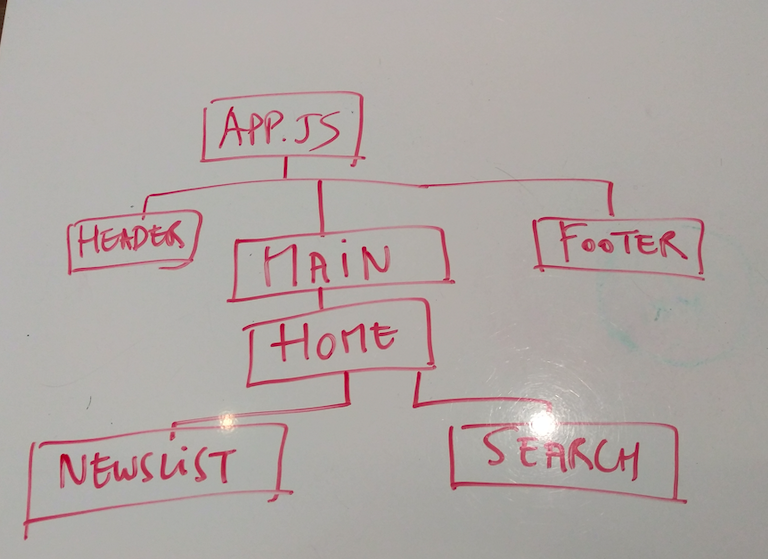 APP.JS
HEADER
MAIN
FOOTER
HOME
NEWSLIST
SEARCH